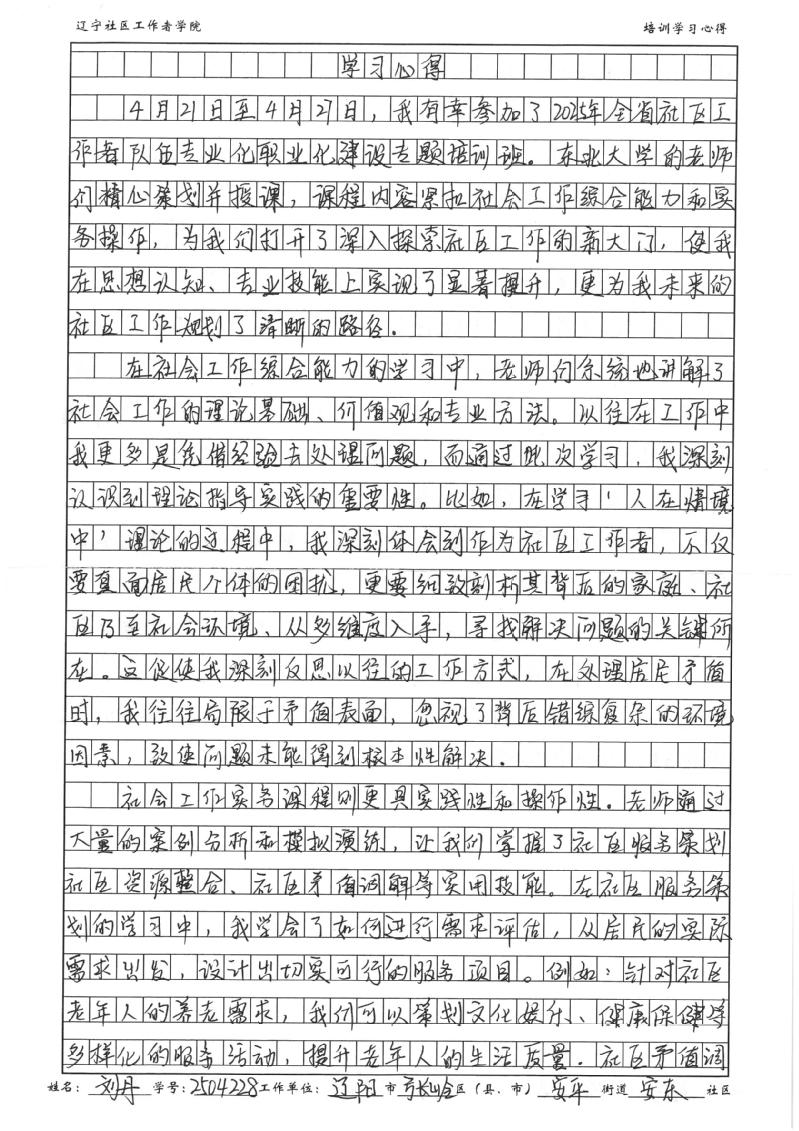 辽宁社区工作者学院 培训学习心得
学习心得
4月21日至4月27日，我有幸参加了2025年全省社区工
作者队伍专业化职业化建设专题培训班。东北大学的老师
们精心策划并授课，课程内容紧扣社会工作综合能力和实
务操作，为我们打开了深入探索社区工作的新大门，使我
在思想认知、专业技能上实现了显著提升，更为我未来的
社区工作规划了清晰的路径。
在社会工作综合能力的学习中，老师们系统地讲解了
社会工作的理论基础、价值观和专业方法。以往在工作中
我更多是凭借经验去处理问题，而通过此次学习，我深刻
认识到理论指导实践的重要性。比如，在学习'人在情境
中'理论的过程中，我深刻体会到作为社区工作者，不仅
要直面居民个体的困扰，更要细致剖析其背后的家庭、社
区乃至社会环境、从多维度入手，寻找解决问题的关键所
在。这促使我深刻反思以往的工作方式，在处理居民矛盾
时，我往往局限于矛盾表面，忽视了背后错综复杂的环境
因素，致使问题未能得到根本性解决。
社会工作实务课程则更具实践性和操作性。老师通过
大量的案例分析和模拟演练，让我们掌握了社区服务策划
社区资源整合、社区矛盾调解等实用技能。在社区服务策
划的学习中，我学会了如何进行需求评估，从居民的实际
需求出发，设计出切实可行的服务项目。例如：针对社区
老年人的养老需求，我们可以策划文化娱乐、健康保健等
多样化的服务活动，提升老年人的生活质量．社区矛盾调
姓名：刘丹 学号：2504228 工作单位：辽阳 市 弓长岭 区（县、市） 安平 街道 安东 社区